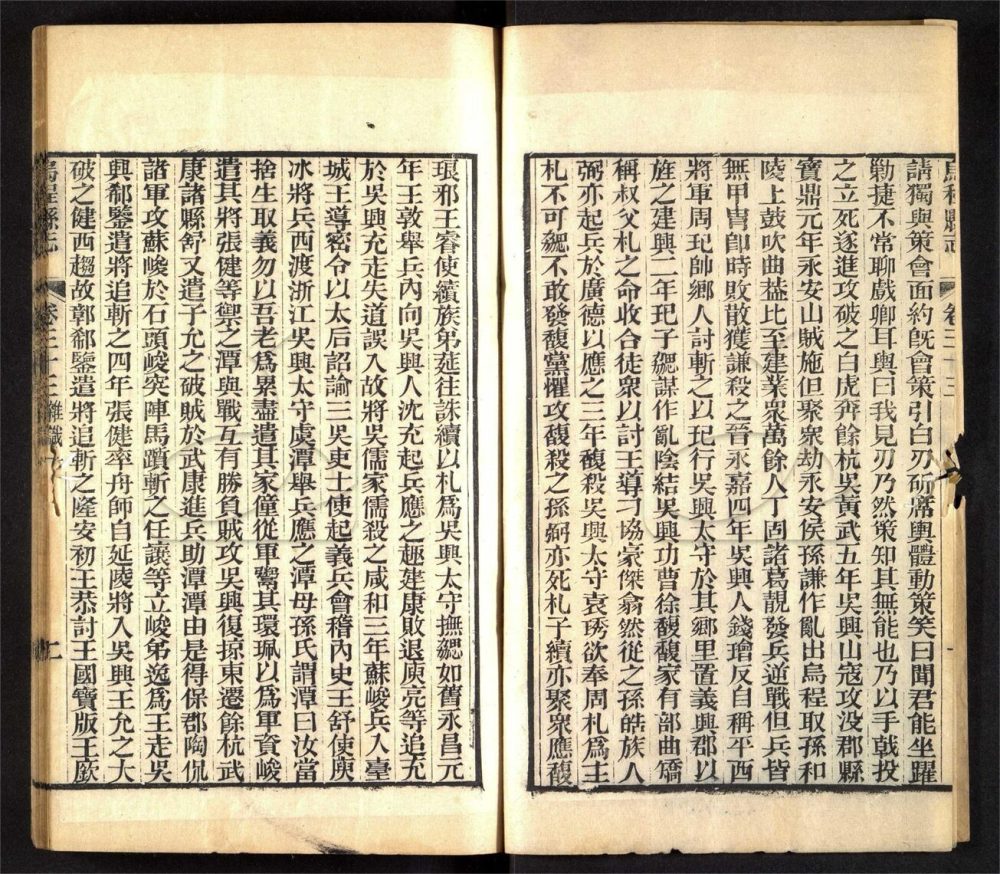 請獨與策會面約既會策引白刃斫席輿體動策笑曰聞君能坐躍
勦捷不常聊戲卿耳輿曰我見刃乃然策知其無能也乃以手戟投
之立死遂進攻破之白虎奔餘杭吳黃武五年吳興山寇攻没郡縣
寶鼎元年永安山賊施但聚衆劫永安侯孫謙作亂出烏程取孫和
陵上鼓吹曲葢比至建業衆萬餘人丁固諸葛靚發兵逆戰但兵皆
無甲冑卽時敗散獲謙殺之晉永嘉四年吳興人錢璯反自稱平西
將軍周玘帥鄉人討斬之以玘行吳興太守於其鄉里置義興郡以
旌之建興二年玘子勰謀作亂陰結吳興功曹徐馥馥家有部曲矯
稱叔父札之命收合徒衆以討王導刁協豪傑翕然從之孫皓族人
弼亦起兵於廣德以應之三年馥殺吳興太守袁琇欲奉周札爲主
札不可勰不敢發馥黨懼攻馥殺之孫弼亦死札子續亦聚衆應馥
烏程縣志
卷三十三
琅邪王睿使續族弟莚往誅續以札爲吳興太守撫勰如舊永昌元
年王敦舉兵內向吳興人沈充起兵應之趣建康敗退庾亮等追充
於吳興充走失道誤入故將吳儒家儒殺之咸和三年蘇峻兵入臺
城王導密令以太后詔諭三吳吏士使起義兵會稽內史王舒使庾
冰將兵西渡浙江吳興太守虞潭舉兵應之潭母孫氏謂潭曰汝當
捨生取義勿以吾老爲累盡遣其家僮從軍鬻其環珮以爲軍資峻
遣其將張健等禦之潭與戰互有勝負賊攻吳興復掠東遷餘杭武
康諸縣舒又遣子允之破賊於武康進兵助潭潭由是得保郡陶侃
諸軍攻蘇峻於石頭峻突陣馬躓斬之任讓等立峻弟逸爲王走吳
興郗鑒遣將追斬之四年張健率舟師自延陵將入吳興王允之大
破之健西趨故鄣郗鑒遣將追斬之隆安初王恭討王國寶版王廞
烏程縣志
卷三十三 雜識